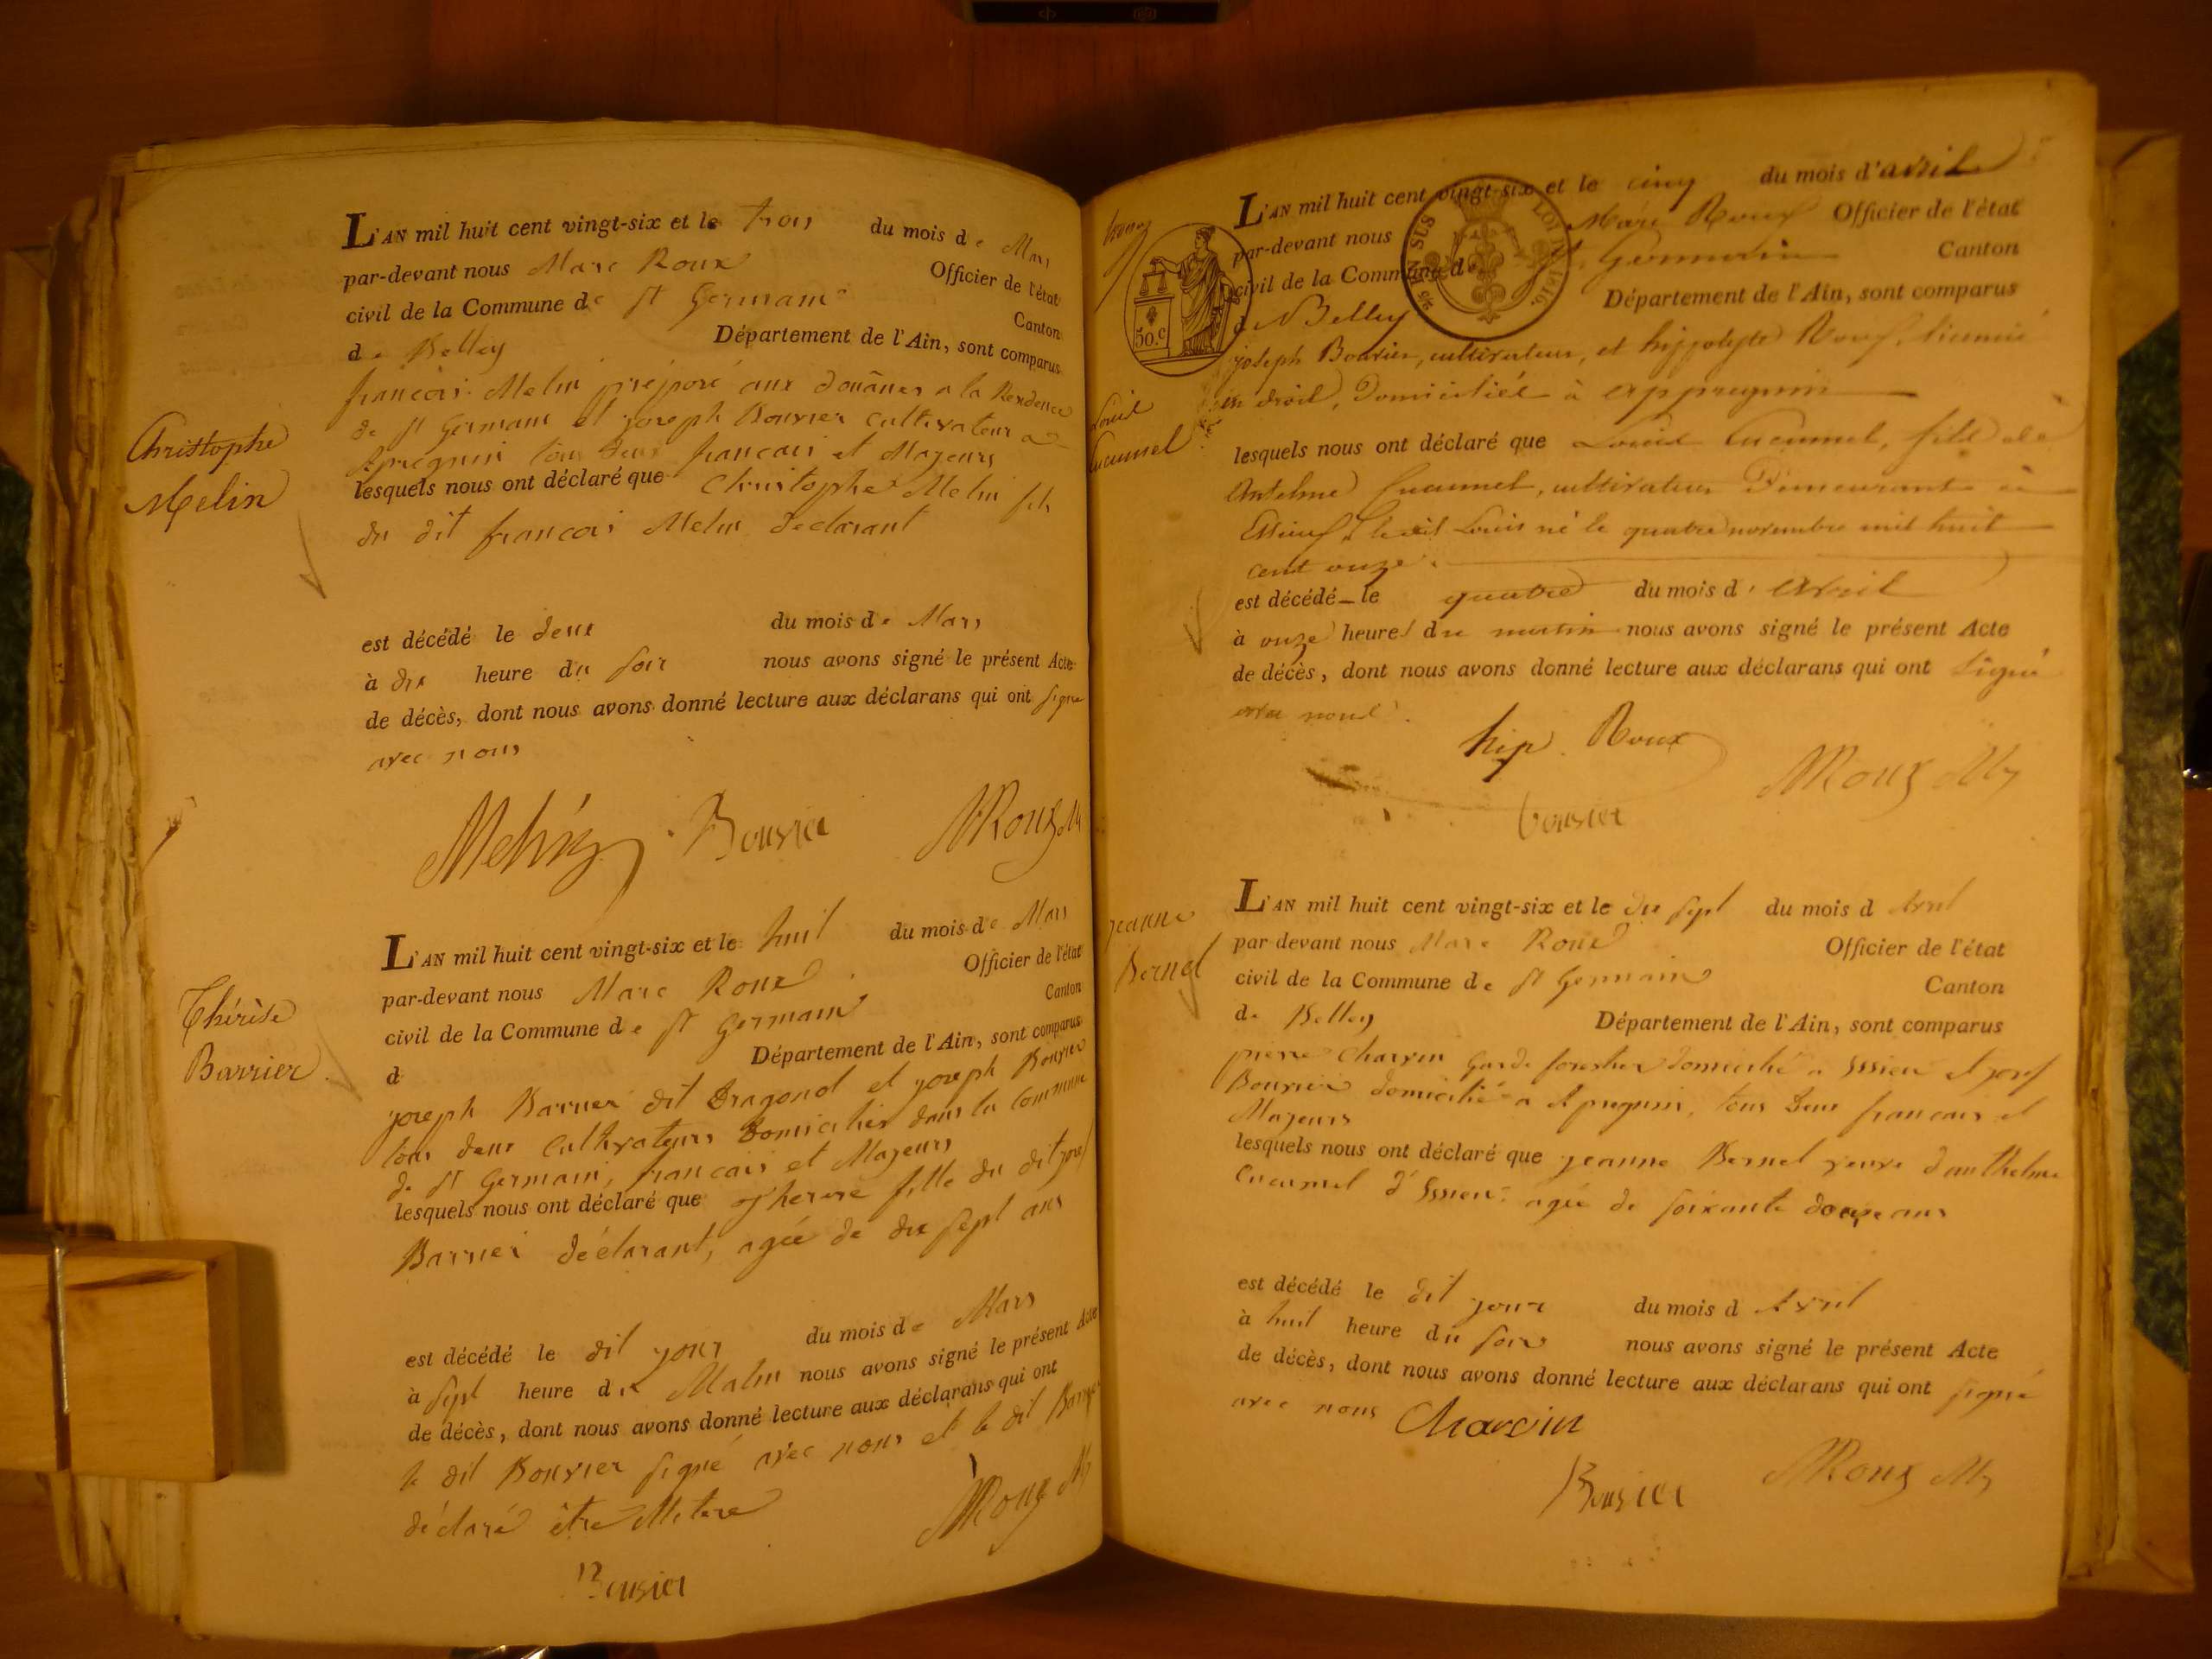 Christophe
Melin
L'AN mil huit cent vingt-six et le trois du mois de Mars
par-devant nous Marc Roux Officier de l'état
civil de la Commune de St Germain Canton
de Belley Département de l'Ain, sont comparus
françois Melin préposé aux douânes a la Residence
de St Germain et joseph Bouvier Cultivateur a
Apregnin tous deux francais et Majeurs
lesquels nous ont déclaré que Christophe Melin fils
du dit françois Melin declarant
est décédé le deux du mois de Mars
à dix heure du soir nous avons signé le présent Acte
de décès, dont nous avons donné lecture aux déclarans qui ont signe
avec nous
Melin Bouvier MRoux
Thérèse
Barrier
L'AN mil huit cent vingt-six et le huit du mois de Mars
par-devant nous Marc Roux Officier de l'état
civil de la Commune de St Germain Canton
d Département de l'Ain, sont comparus
joseph Barrier dit Dragond et joseph Bouvier
tous deux Cultivateurs Domiciliés dans la Commune
de St Germain, francais et Majeurs
lesquels nous ont déclaré que therese fille du dit josef
Barrier déclarant, agée de dix sept ans
est décédé le dit jour du mois de Mars
à sept heure du Matin nous avons signé le présent Acte
de décès, dont nous avons donné lecture aux déclarans qui ont
le dit Bouvier signé avec nous et le dit Barrier
déclaré être
MRoux
Bouvier
50.c
EN SUS LOI DE 1816.
Louis
Cucumel
L'AN mil huit cent vingt-six et le cinq du mois d'avril
par-devant nous Marc Roux Officier de l'état
civil de la Commune de St Germain Canton
de Belley Département de l'Ain, sont comparus
joseph Bouvier, cultivateur, et hyppolyte Roux, licencié
en droit, Domiciliés à appregnin
lesquels nous ont déclaré que Louis Cucumel, fils de
Antelme Cucumel, cultivateur Demeurant à
Essieux, ledit Louis né le quatre novembre mil huit
cent onze.
est décédé le quatre du mois d' avril
à onze heures du matin nous avons signé le présent Acte
de décès, dont nous avons donné lecture aux déclarans qui ont signé
avec nous.
hip. Roux
MRoux
Bouvier
jeanne
Bernel
L'AN mil huit cent vingt-six et le dix sept du mois d Avril
par devant nous Marc Roux Officier de l'état
civil de la Commune de St Germain Canton
de Belley Département de l'Ain, sont comparus
pierre Charvin Garde forestier domicilié a Essieu et josef
Bouvier domicilié a Apregnin, tous deux francais et
Majeurs
lesquels nous ont déclaré que jeanne Bernel veuve d'anthelme
Cucumel d'Essieu agée de soixante douze ans
est décédé le dit jour du mois d Avril
à huit heure du soir nous avons signé le présent Acte
de décès, dont nous avons donné lecture aux déclarans qui ont signé
avec nous Charvin
Bouvier MRoux